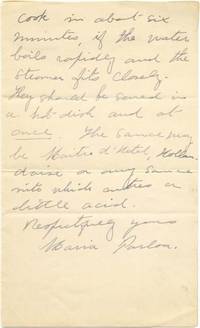 cook in about six
minutes, if the water
boils rapidly and the
steamer fits closely.
They should be served in
a hot dish and at
once. The sauce may
be Maitre d'Hotel, Hollan-
daise or any sauce
into which enters a
little acid.
Respectfully yours
Maria Parloa.